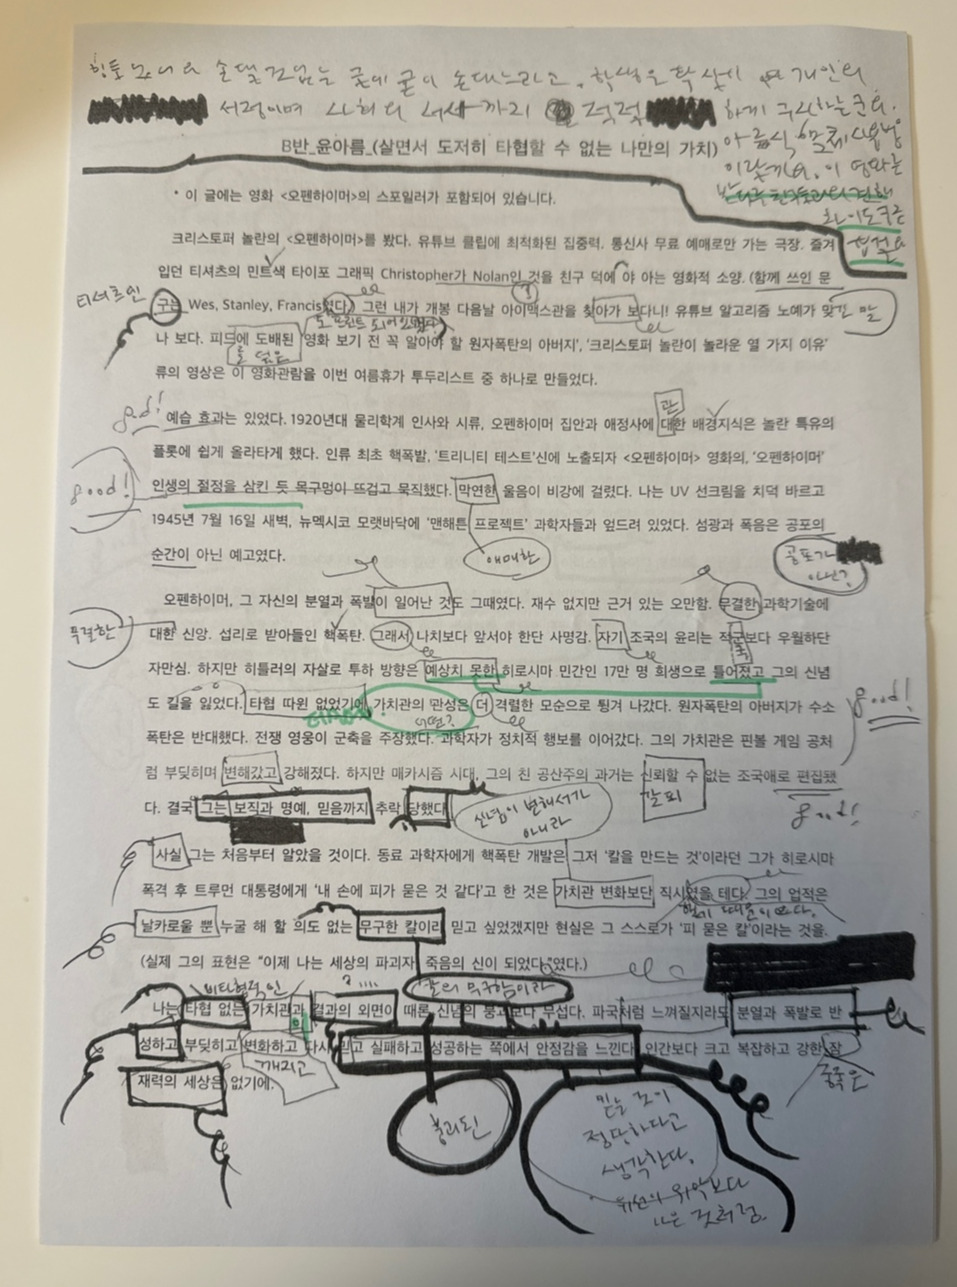 힘톤
손댈 것 없는 글에 굳이 손대느라고, 학생은 확실히 개인의
서정이며 사회의 서사까지 적절하게 구사하는군요.
B반_윤아름_(살면서 도저히 타협할 수 없는 나만의 가치)
이 영화는
* 이 글에는 영화 <오펜하이머>의 스포일러가 포함되어 있습니다.
크리스토퍼 놀란의 <오펜하이머>를 봤다. 유튜브 클립에 최적화된 집중력. 통신사 무료 예매로만 가는 극장. 즐겨
입던 티셔츠의 민트색 타이포 그래픽 Christopher가 Nolan인 것을 친구 덕에 야 아는 영화적 소양. (함께 쓰인 문
티셔츠인
구는 Wes, Stanley, Francis였다.) 그런 내가 개봉 다음날 아이맥스관을 찾아가 보다니! 유튜브 알고리즘 노예가 맞긴 말
도 프린트 되어
나 보다. 피드에 도배된 '영화 보기 전 꼭 알아야 할 원자폭탄의 아버지', '크리스토퍼 놀란이 놀라운 열 가지 이유'
를 덮은
류의 영상은 이 영화관람을 이번 여름휴가 투두리스트 중 하나로 만들었다.
good!
관
예습 효과는 있었다. 1920년대 물리학계 인사와 시류, 오펜하이머 집안과 애정사에 대한 배경지식은 놀란 특유의
플롯에 쉽게 올라타게 했다. 인류 최초 핵폭발, '트리니티 테스트'신에 노출되자 <오펜하이머> 영화의, '오펜하이머'
good!
인생의 절정을 삼킨 듯 목구멍이 뜨겁고 묵직했다. 막연한 울음이 비강에 걸렸다. 나는 UV 선크림을 치덕 바르고
1945년 7월 16일 새벽, 뉴멕시코 모랫바닥에 '맨해튼 프로젝트' 과학자들과 엎드려 있었다. 섬광과 폭음은 공포의
순간이 아닌 예고였다.
애매한
공포가
아닌?
오펜하이머, 그 자신의 분열과 폭발이 일어난 것도 그때였다. 재수 없지만 근거 있는 오만함. 무결한 과학기술에
무결한
대한 신앙. 섭리로 받아들인 핵폭탄. 그래서 나치보다 앞서야 한단 사명감. 자기 조국의 윤리는 적군보다 우월하단
자만심. 하지만 히틀러의 자살로 투하 방향은 예상치 못한 히로시마 민간인 17만 명 희생으로 틀어졌고 그의 신념
도 길을 잃었다. 타협 따윈 없었기에 가치관의 관성은 더 격렬한 모순으로 튕겨 나갔다. 원자폭탄의 아버지가 수소
어떨?
good!
폭탄은 반대했다. 전쟁 영웅이 군축을 주장했다. 과학자가 정치적 행보를 이어갔다. 그의 가치관은 핀볼 게임 공처
럼 부딪히며 변해갔고 강해졌다. 하지만 매카시즘 시대, 그의 친 공산주의 과거는 신뢰할 수 없는 조국애로 편집됐
갈피
다. 결국 그는 보직과 명예, 믿음까지 추락 당했다.
신념이 변해서가
아니라
good!
사실 그는 처음부터 알았을 것이다. 동료 과학자에게 핵폭탄 개발은 그저 '칼을 만드는 것'이라던 그가 히로시마
폭격 후 트루먼 대통령에게 '내 손에 피가 묻은 것 같다'고 한 것은 가치관 변화보단 직시였을 테다. 그의 업적은
했기 때문이었다.
날카로울 뿐 누굴 해 할 의도 없는 무구한 칼이라 믿고 싶었겠지만 현실은 그 스스로가 '피 묻은 칼'이라는 것을.
(실제 그의 표현은 "이제 나는 세상의 파괴자, 죽음의 신이 되었다."였다.)
비타협적인
칼의 무구함이라
나는 타협 없는 가치관과 결과의 외면이 때론 신념의 붕괴보다 무섭다. 파국처럼 느껴질지라도 분열과 폭발로 반
의
성하고 부딪히고 변화하고 다시 믿고 실패하고 성공하는 쪽에서 안정감을 느낀다. 인간보다 크고 복잡하고 강한 잠
깨지고
재력의 세상은 없기에.
붕괴된
믿는 것이
정당하다고
생각한다.
위선의 위악보다
나은 것처럼.